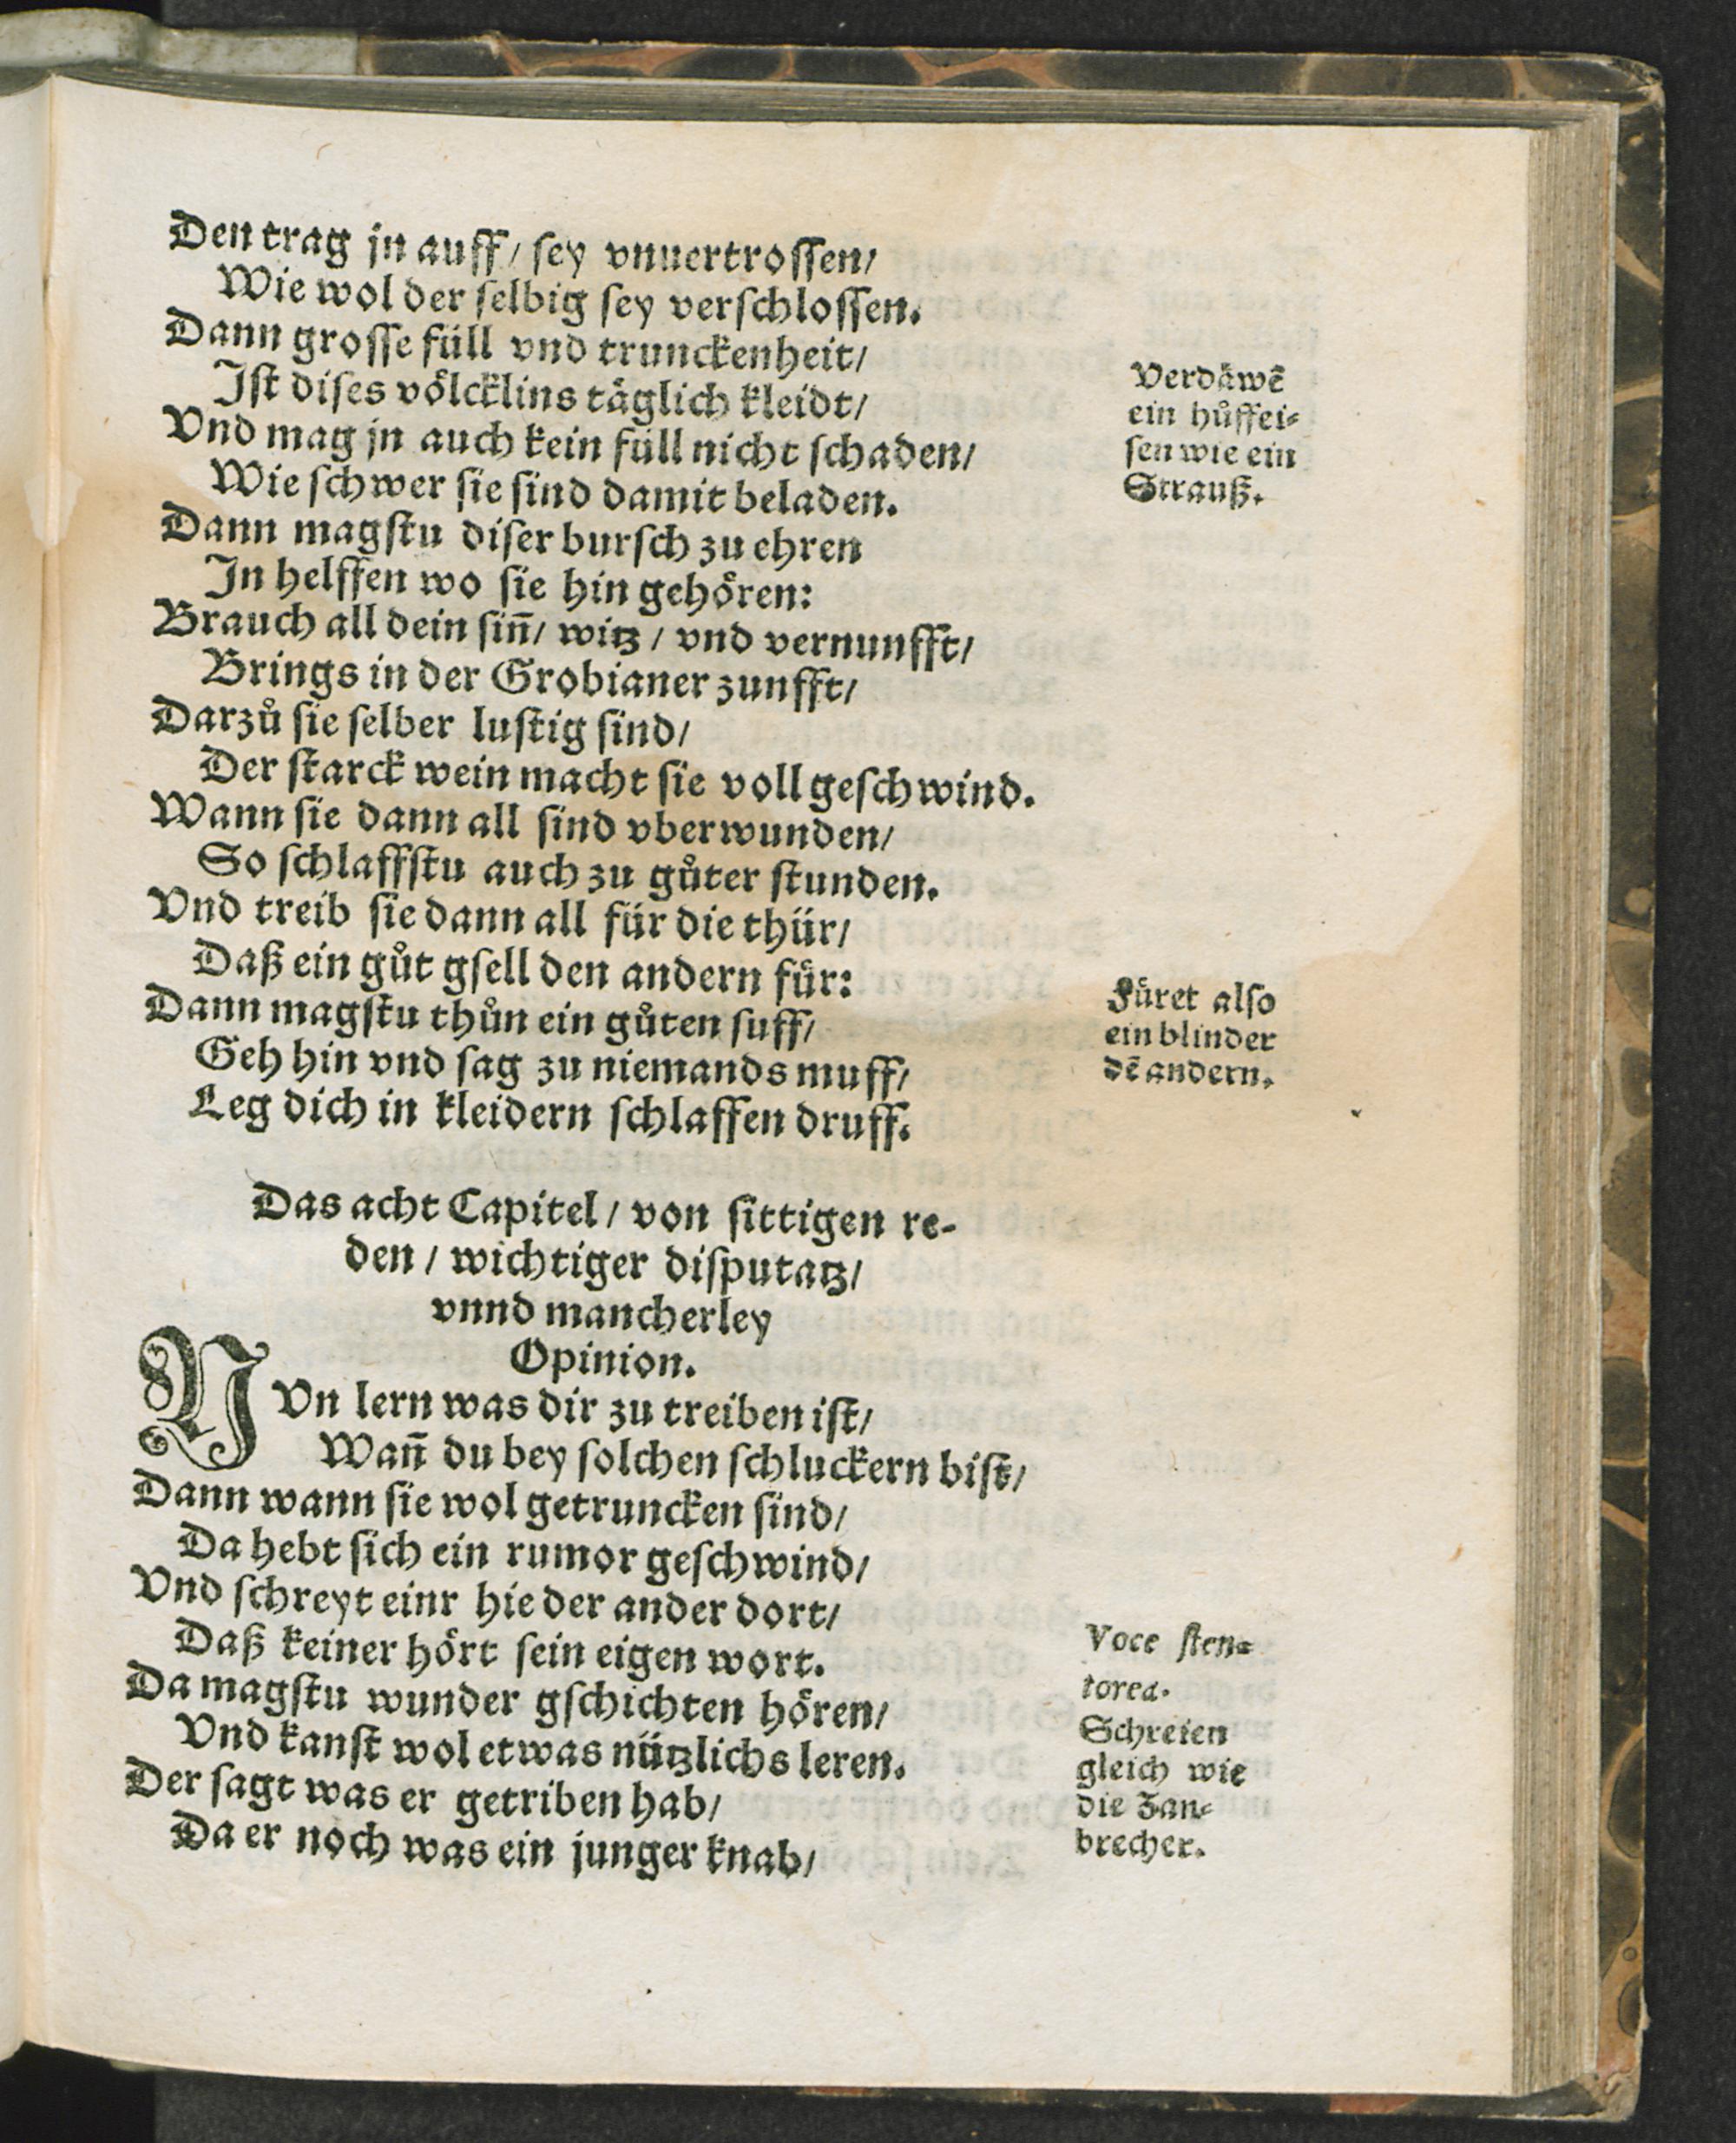 Den trag jn auff/ ſey vnuertroſſen/
Wie wol der ſelbig ſey verſchloſſen.
Dann groſſe füll vnd trunckenheit/
Iſt diſes voͤlcklins taͤglich kleidt/
Vnd mag jn auch kein füll nicht ſchaden/
Wie ſchwer ſie ſind damit beladen.
Verdaͤwẽ
ein huͦffei⸗
ſen wie ein
Strauß.
Dann magſtu diſer burſch zu ehren
In helffen wo ſie hin gehoͤren:
Brauch all dein ſiñ/ witz/ vnd vernunfft/
Brings in der Grobianer zunfft/
Darzuͦ ſie ſelber luſtig ſind/
Der ſtarck wein macht ſie voll geſchwind.
Wann ſie dann all ſind vberwunden/
So ſchlaffſtu auch zu guͦter ſtunden.
Vnd treib ſie dann all für die thür/
Daß ein guͦt gſell den andern fuͤr:
Dann magſtu thuͦn ein guͦten ſuff/
Geh hin vnd ſag zu niemands muff/
Leg dich in kleidern ſchlaffen druff.
Fuͤret alſo
ein blinder
dẽ andern.
Das acht Capitel/ von ſittigen re-
den/ wichtiger diſputatz/
vnnd mancherley
Opinion.
NVn lern was dir zu treiben iſt/
Wañ du bey ſolchen ſchluckern biſt/
Dann wann ſie wol getruncken ſind/
Da hebt ſich ein rumor geſchwind/
Vnd ſchreyt einr hie der ander dort/
Daß keiner hoͤrt ſein eigen wort.
Da magſtu wunder gſchichten hoͤren/
Vnd kanſt wol etwas nützlichs leren.
Der ſagt was er getriben hab/
Da er noch was ein junger knab/
Voce ſten⸗
torea.
Schreien
gleich wie
die Zan⸗
brecher.